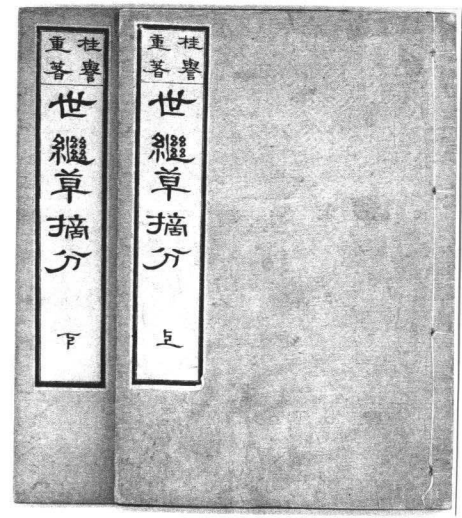 桂譽
重著
世繼草摘分
上
桂譽
重著
世繼草摘分
下